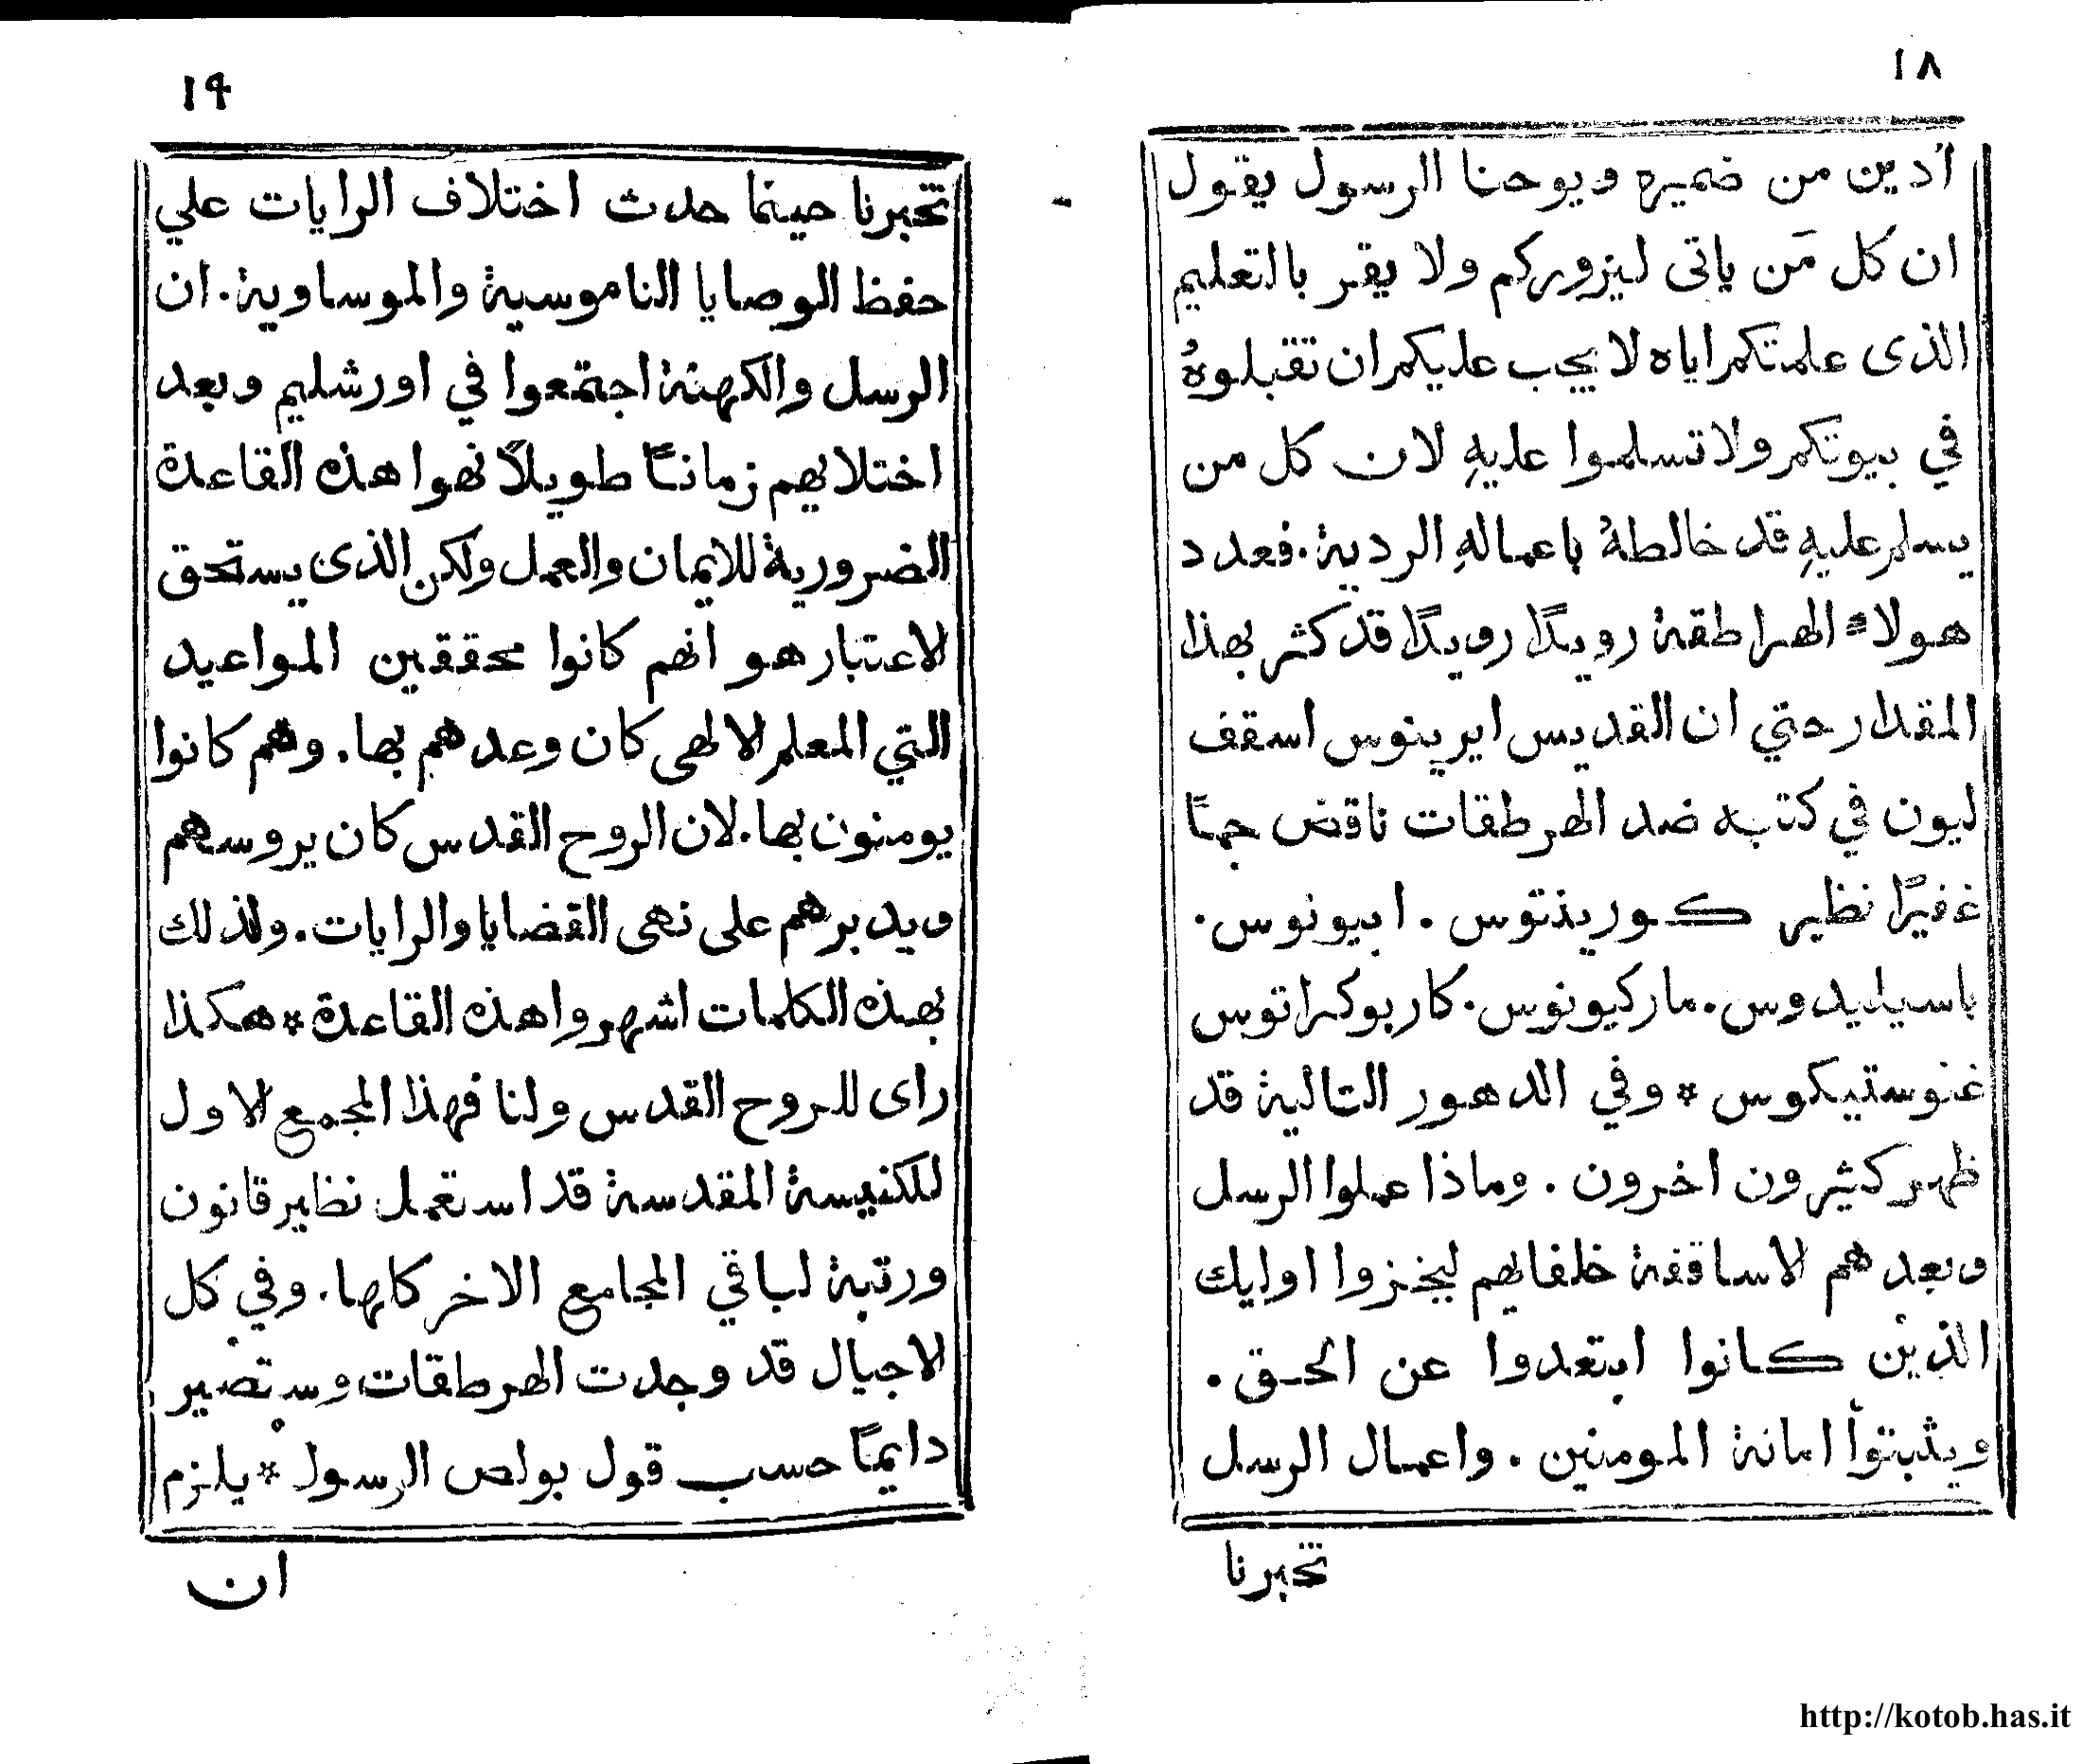 ١٨
اُدين من ضميره ويوحنا الرسول يقول
ان كل مَن ياتى ليزوركم ولا يقر بالتعليم
الذى علمتكم اياه لا يجب عليكم ان تقبلوهُ
في بيوتكم ولا تسلموا عليهِ لان كل من
يسلم عليهِ قد خالطهُ باعمالهِ الردية. فعدد
هولاء الهراطقة رويدًا رويدًا قد كثر بهذا
المقدار حتي ان القديس ايرينوس اسقف
ليون في كتبه ضد الهرطقات ناقض جمًا
غفيرًا نظير كورينتوس. ابيونوس.
باسيليدوس. ماركيونوس. كاربوكراتوس
غنوستيكوس * وفي الدهور التالية قد
ظهر كثيرون اخرون. وماذا عملوا الرسل
وبعدهم الاساقفة خلفايهم ليخزوا اوليك
الذين كانوا ابتعدوا عن الحق.
ويثبتوا امانة المومنين. واعمال الرسل
تخبرنا
١٩
تخبرنا حينما حدث اختلاف الرايات علي
حفظ الوصايا الناموسية والموساوية. ان
الرسل والكهنة اجتمعوا في اورشليم وبعد
اختلايهم زمانًا طويلًا نهوا هذه القاعدة
الضرورية للايمان والعمل ولكن الذى يستحق
الاعتبار هو انهم كانوا محققين المواعيد
التي المعلم الالهى كان وعدهم بها. وهم كانوا
يومنون بها. لان الروح القدس كان يروسهم
ويدبرهم على نهى القضايا والرايات. ولذلك
بهذه الكلمات اشهروا هذه القاعدة * هكذا
راى للروح القدس ولنا فهذا المجمع الاول
للكنيسة المقدسة قد استعمل نظير قانون
ورتبة لباقي المجامع الاخر كلها. وفي كل
الاجيال قد وجدت الهرطقات وستصير
دايمًا حسب قول بولص الرسول * يلزم
ان
http://kotob.has.it